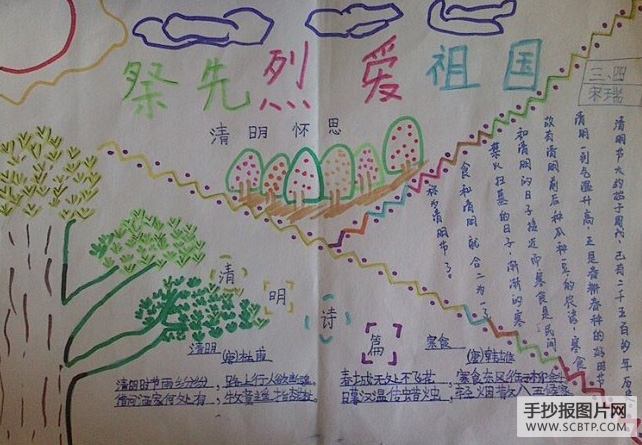 祭先烈 爱祖国
清明怀思
三、四
宋瑞
清明节大约始于周代,已有二千五百多年历
清明一到气温升高,正是春耕春种的好田节
故有清明前后种瓜种豆的农谚,寒食
和清明的日子接近而寒食是民间
禁火扫墓的日子,渐渐的寒
食和清明就合二为一了
称为清明节了。
清明诗篇
清明
(唐)杜牧
清明时节雨纷纷,路上行人欲断魂。
借问酒家何处有,牧童遥指杏花村。
寒食
(唐)韩雄
春城无处不飞花,寒食东风
日暮汉温传蜡烛,轻烟散入五
手抄报图片网
WWW.SCBTP.COM